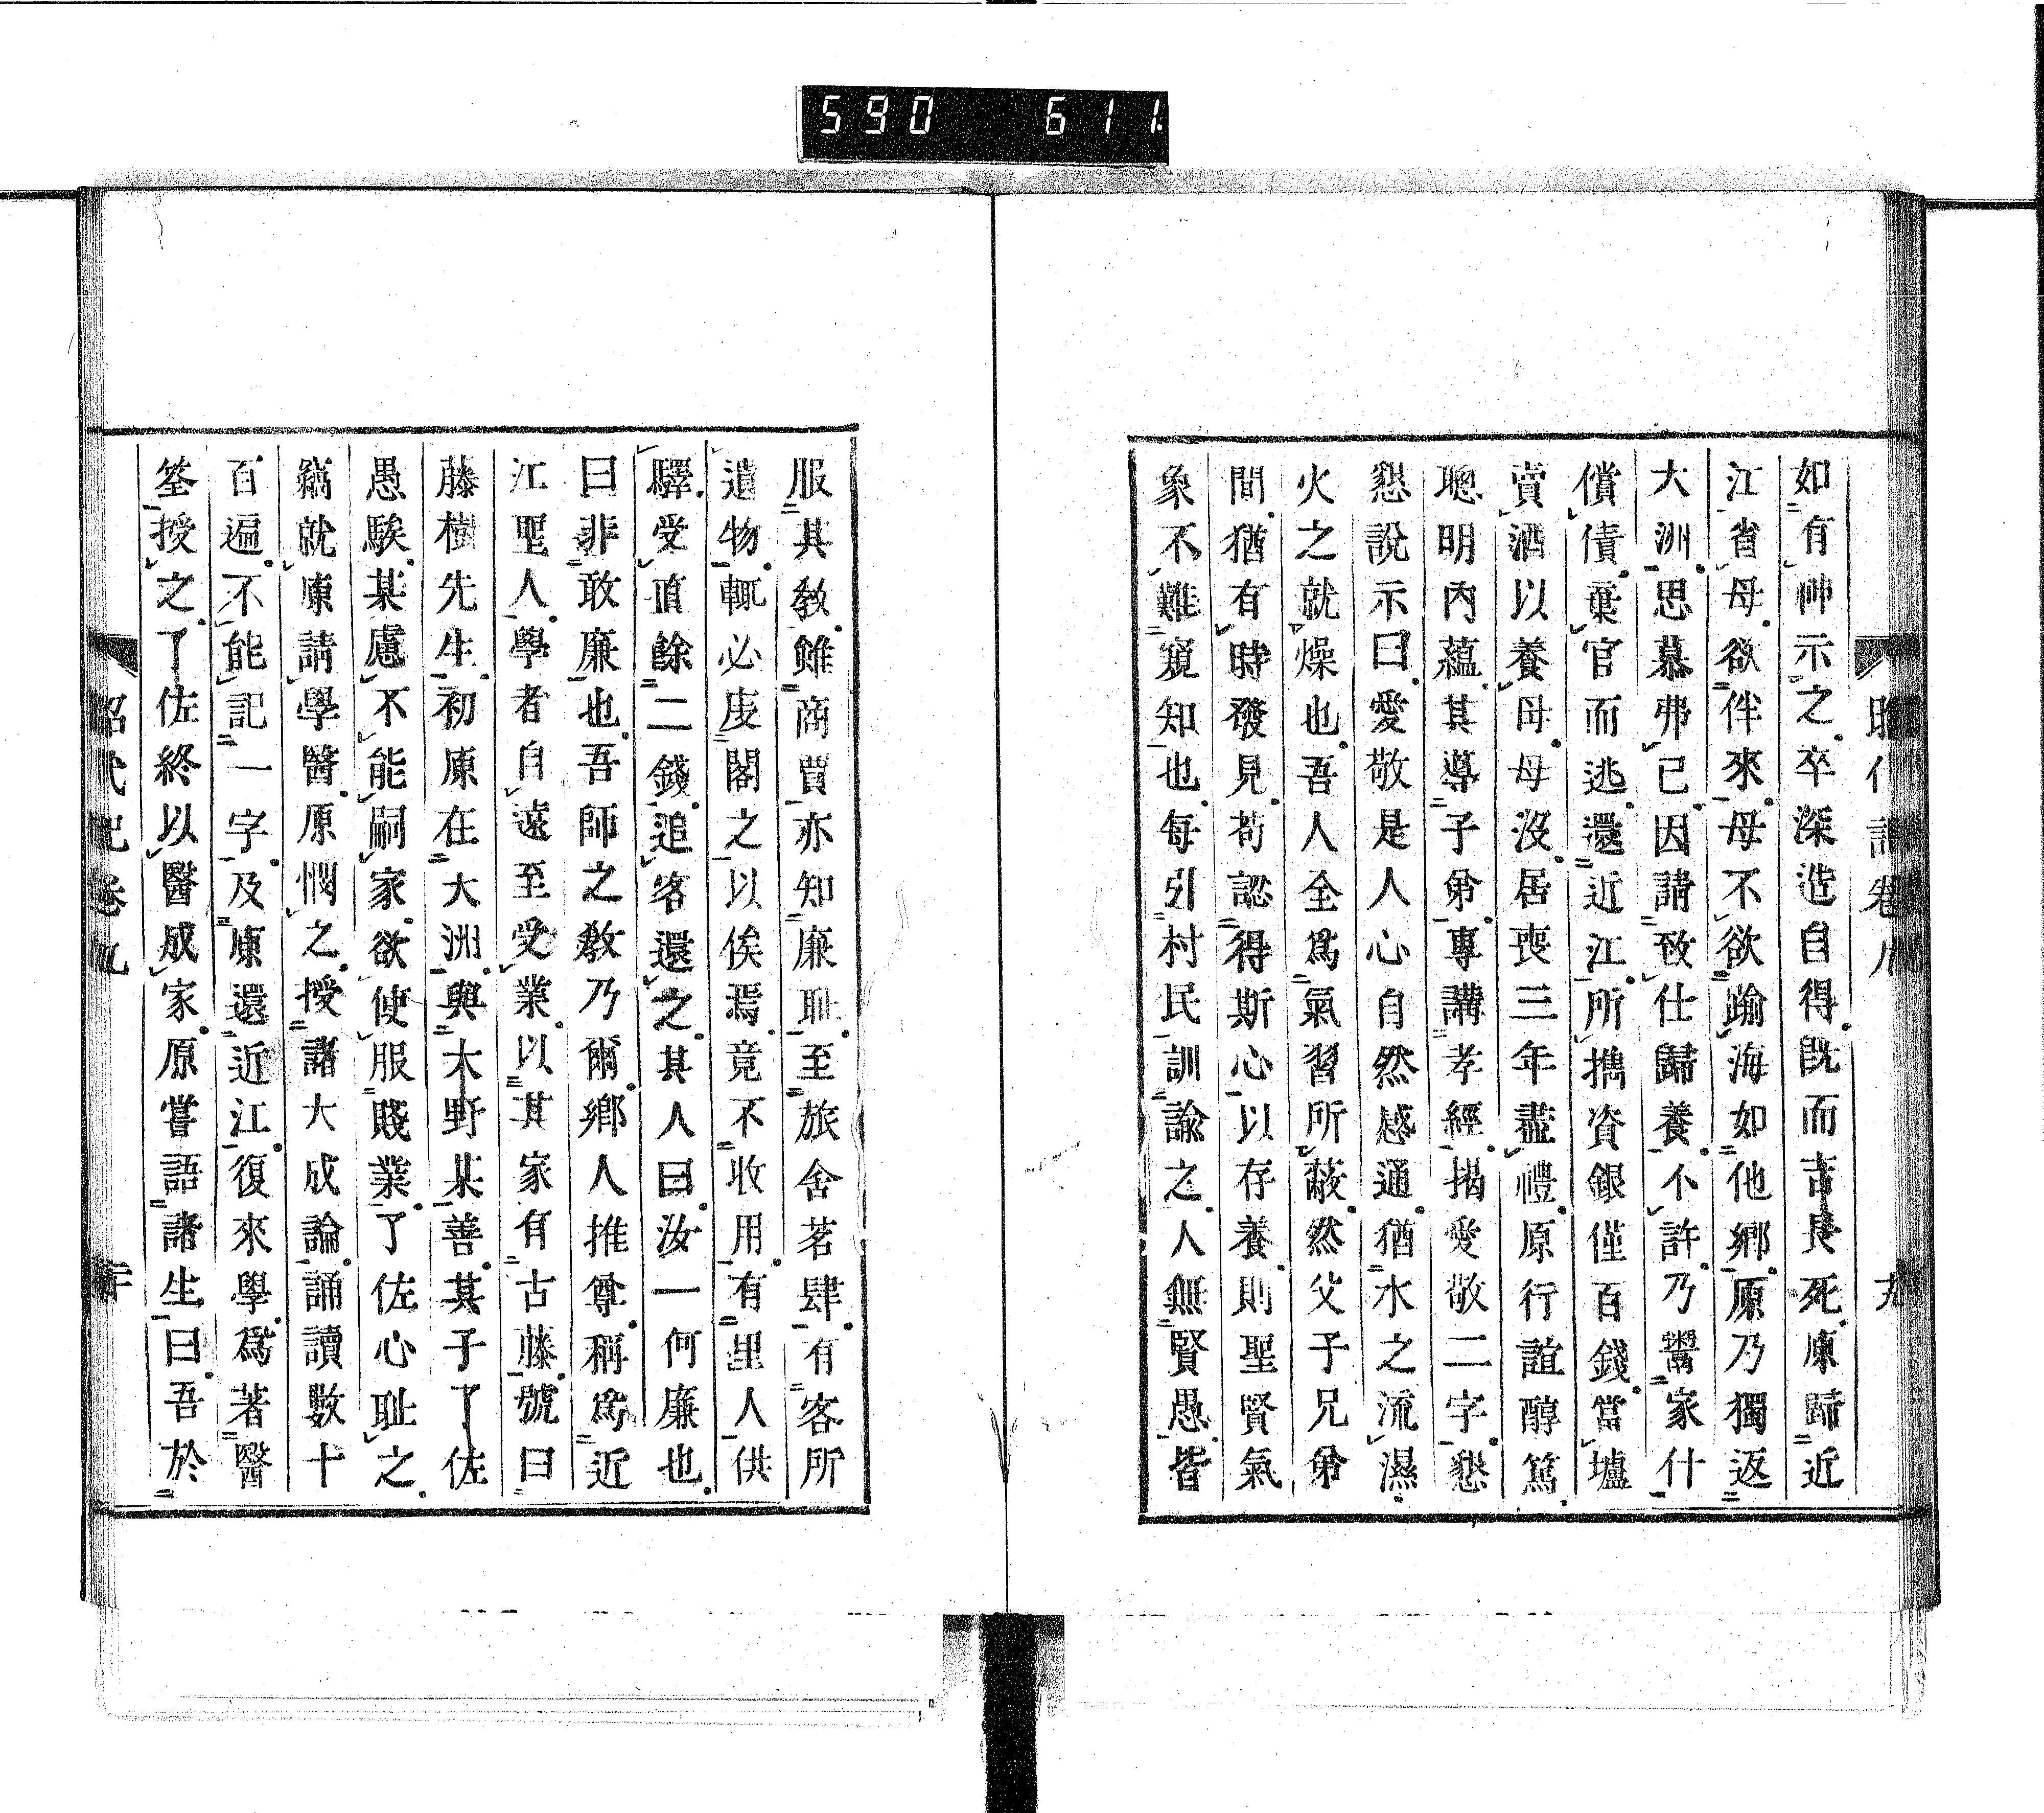 590 611
如有神示之卒深造自得既而吉長死原歸近
江省母欲伴來母不欲踰海如他鄉原乃獨返
大洲思慕弗已因請致仕歸養不許乃鬻家什
償債棄官而逃還近江所擕資銀僅百錢當壚
賣酒以養母母沒居喪三年盡禮原行誼醇篤
聰明內蘊其導子弟專講孝經揭愛敬二字懇
懇說示曰愛敬是人心自然感通猶水之流濕
火之就燥也吾人全爲氣習所蔽然父子兄弟
間猶有時發見苟認得斯心以存養則聖賢氣
象不難窺知也每引村民訓諭之人無賢愚皆
服其敎雖商賈亦知廉耻至旅舍茗肆有客所
遺物輒必庋閣之以俟焉竟不收用有里人供
驛受直餘二錢追客還之其人曰汝一何廉也
曰非敢廉也吾師之敎乃爾鄉人推尊稱爲近
江聖人學者自遠至受業以其家有古藤號曰
藤樹先生初原在大洲與大野某善其子了佐
愚騃某慮不能嗣家欲使服賤業了佐心耻之
竊就原請學醫原憫之授諸大成論誦讀數十
百遍不能記一字及原還近江復來學爲著醫
筌授之了佐終以醫成家原嘗語諸生曰吾於